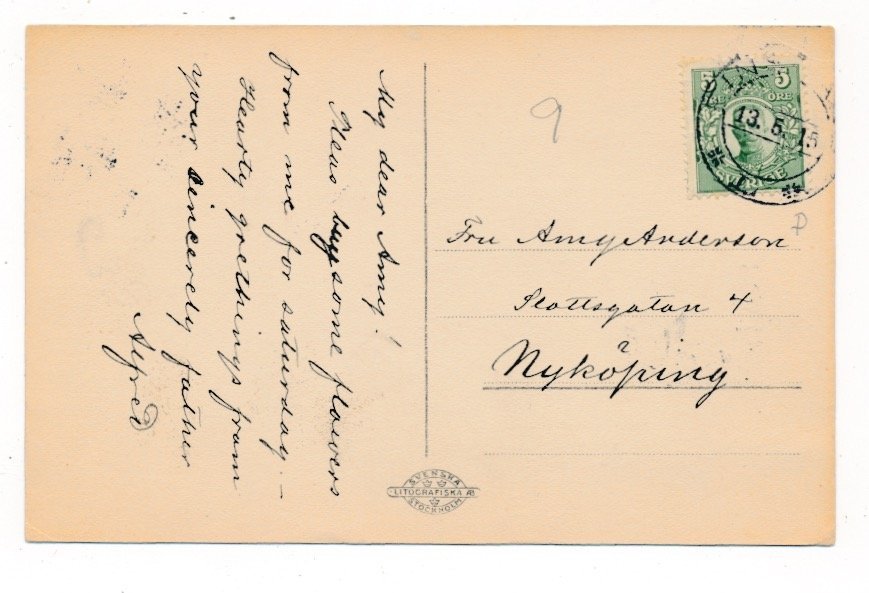 My dear Amy!
Pleas buy some flowers
from me for saturday. —
Hearty grethings from
your sincerely father
Alfred
9
5 5
ÖRE
SVERIGE
13. 5. 15
Fru Amy Anderson
Slottsgatan 4
Nyköping.
SVENSKA
LITOGRAFISKA AB
STOCKHOLM